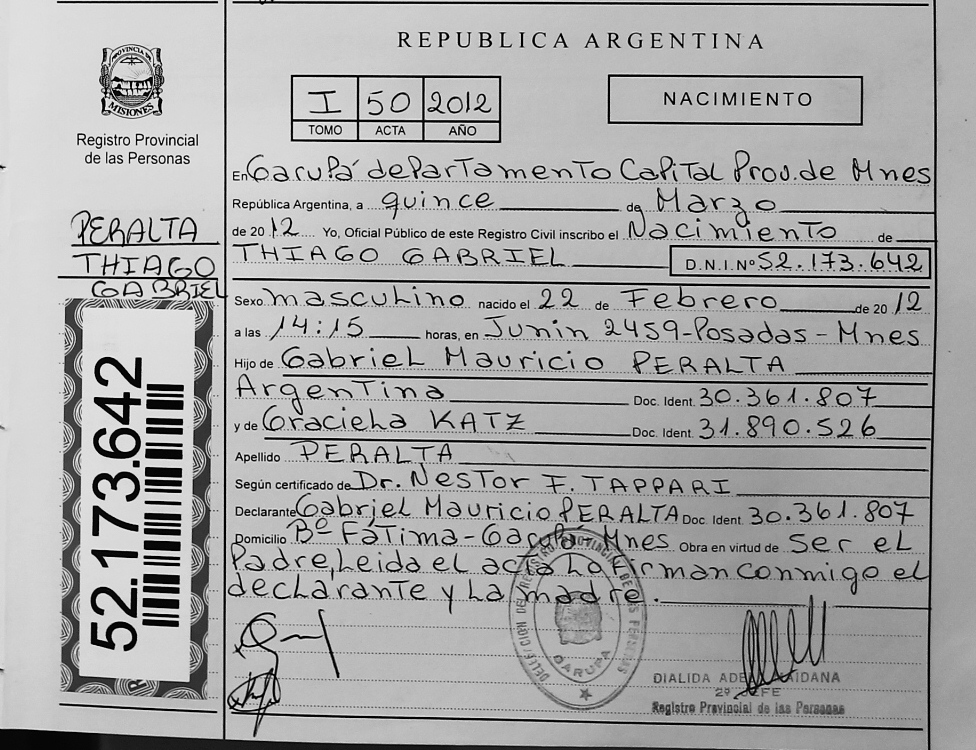 REPUBLICA ARGENTINA
PROVINCIA DE MISIONES
Registro Provincial
de las Personas
I 50 2012
TOMO ACTA AÑO
NACIMIENTO
PERALTA
THIAGO
GABRIEL
52.173.642
En Garupá departamento Capital Prov. de Mnes
República Argentina, a quince de Marzo
de 2012 Yo, Oficial Público de este Registro Civil inscribo el Nacimiento de
THIAGO GABRIEL D.N.I. Nº 52.173.642
Sexo masculino nacido el 22 de Febrero de 2012
a las 14:15 horas, en Junin 2459-Posadas-Mnes
Hijo de Gabriel Mauricio PERALTA
Argentina Doc. Ident. 30.361.807
y de Graciela KATZ Doc. Ident. 31.890.526
Apellido PERALTA
Según certificado de Dr. Nestor F. TAPPARI
Declarante Gabriel Mauricio PERALTA Doc. Ident. 30.361.807
Domicilio Bº Fátima-Garupá-Mnes Obra en virtud de ser el
Padre, Leida el acta La firman conmigo el
declarante y La madre.
GARUPA
DIALIDA
2º JEFE
Registro Provincial de las Personas